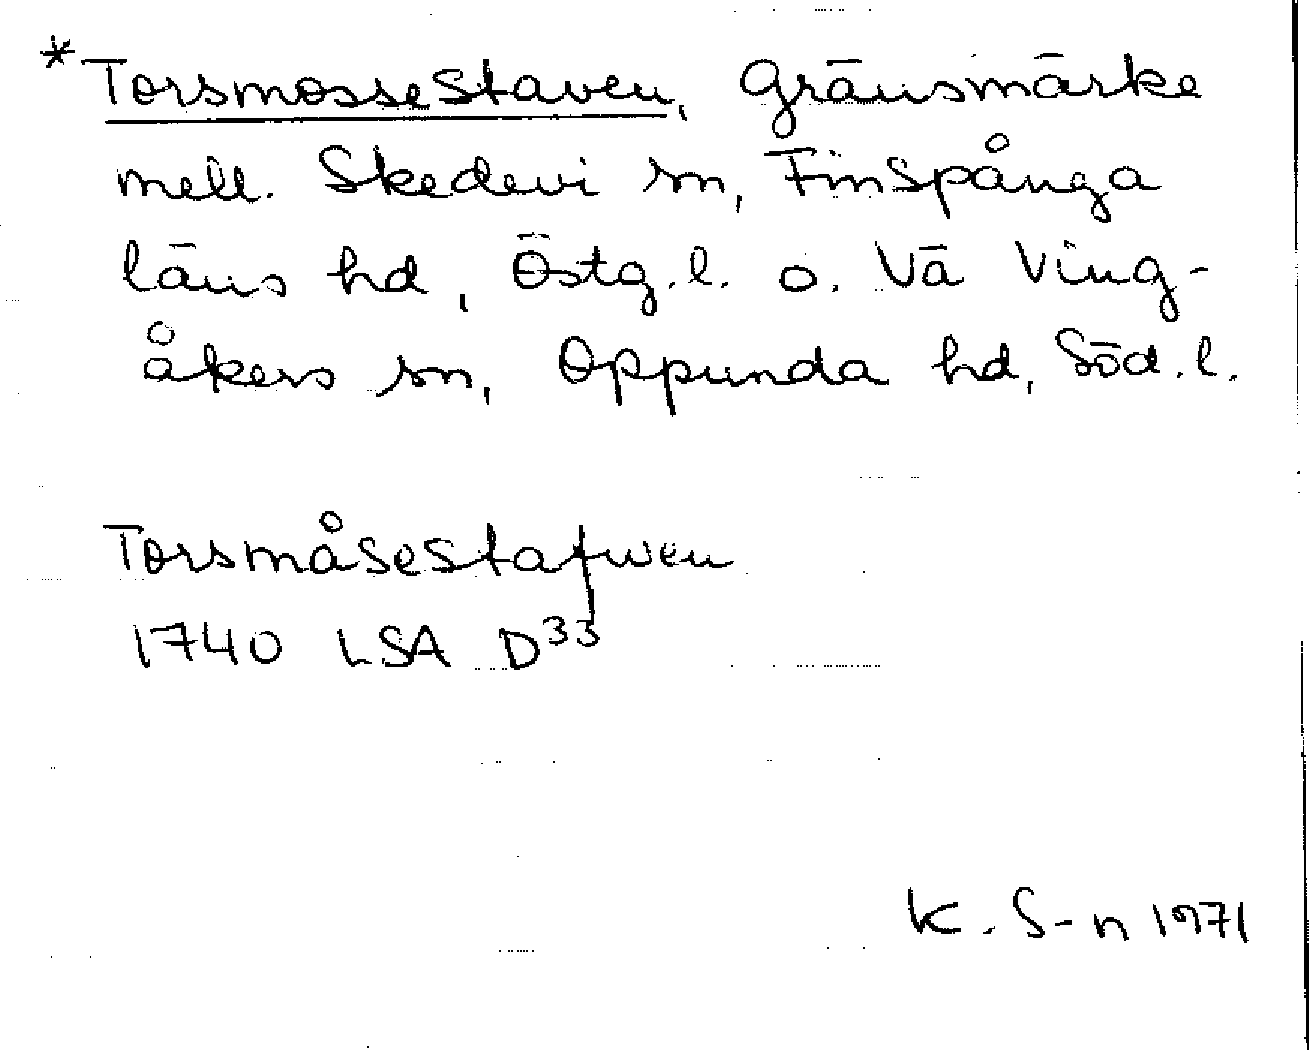 *Torsmossestaven, Gränsmärke
mell. Skedevi sn, Finspånga
läns hd, Östg. l. o. Vä Ving-
åkers sn, Oppunda hd, Söd. l.
Torsmåsestafwen
1740 LSA D33
K. S-n 1971